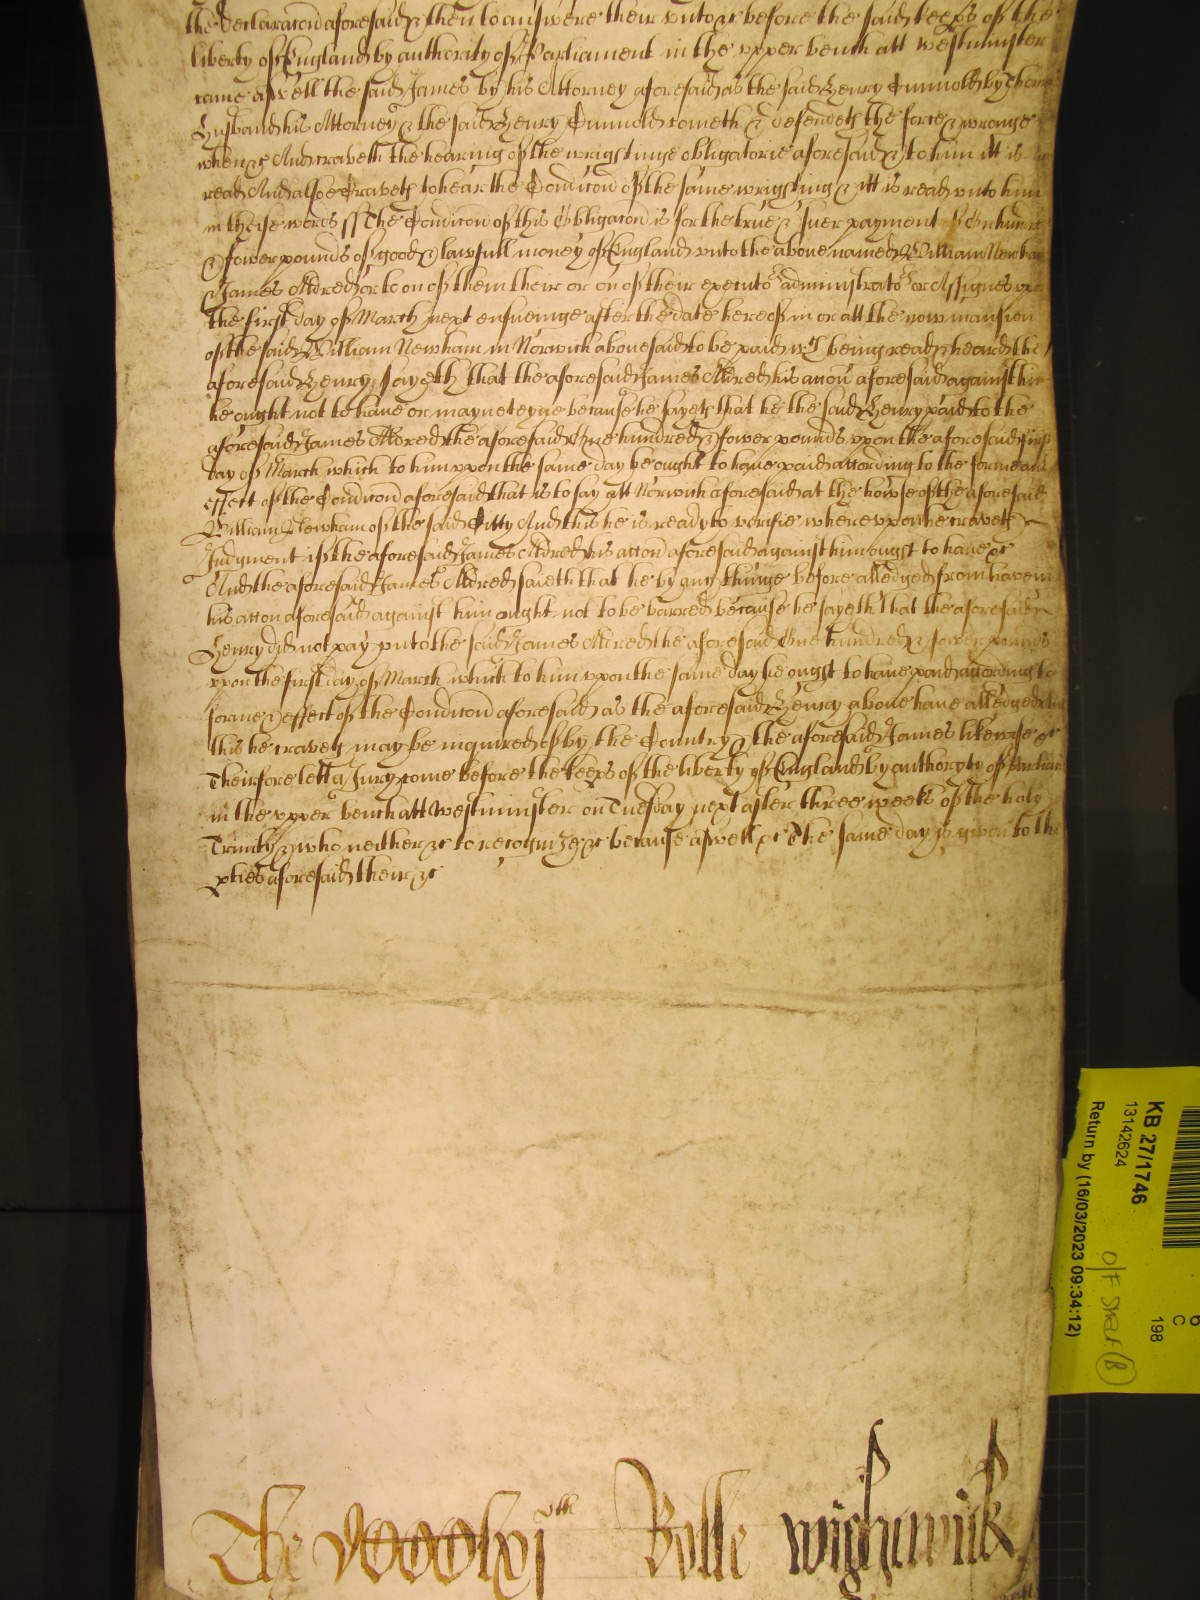 the declaracon aforesaid & then to answere their vnto &c before the said keeps of the
liberty of England by authority of Parliament in the vpper bench att westminster
came aswell the said James by his Attorney aforesaid as the said Henry Gunnold by
Husband his Attorney & the said Henry Gunnold cometh & defendeth the force & wronge
when &c And craveth the hearing of the wrightinge obligatorie aforesaid & to him itt is
read And alsoe Craveth to hear the Condicon of the same wrighting & itt is read vnto him
in theise words ss The Condicon of this Obligacon is for the true & suer payment of
& fower pounds of good & lawfull money of England vnto the above named William Newham
James Aldred or to on of them their or on of their executors administrators or Assignes
the first day of March next ensueinge after the date hereof in or att the now mansion
of the said William Newham in Norwich abovesaid to be paid wch being read & heard the
aforesaid Henry sayeth that the aforesaid James Aldred his accon aforesaid against him
he ought not to have or mayneteyne because he sayeth that he the said Henry paid to the
aforesaid James Aldred the aforesaid One hundred & fower pounds vpon the aforesaid first
day of March which to him vpon the same day he ought to have paid according to the forme and
effect of the Condicon aforesaid that is to say att Norwich aforesaid at the howse of the aforesaid
William Newham of the said Citty And this he is ready to verifie wherevpon he craveth
Judgment if the aforesaid James Aldred his accon aforesaid against him ought to have &c
And the aforesaid James Aldred saieth that he by any thinge before alledged from haveing
his accon aforesaid against him ought not to be barred because he sayeth that the aforesaid
Henry did not pay vnto the said James Aldred the aforesaid One hundred & fower pounds
vpon the first day of March which to him vpon the same day he ought to have paid according to
forme & effect of the Condicon aforesaid as the aforesaid Henry above have alledged
this he craveth may be inquired of by the Country & the aforesaid James likewise &c
Theirfore lett a Jury come before the keeps of the liberty of England by authoryty of
in the vpper bench att Westminster on Tuesday next after three weeks of the holy
Trinity & who neither &c to recognize &c because aswell &c The same day is given to the
pties aforesaid their &c
The Rolle wightwick
KB 27/1746
13142624
Return by (16/03/2023 09:34:12)
198
C
6
O/F Shelf (B)